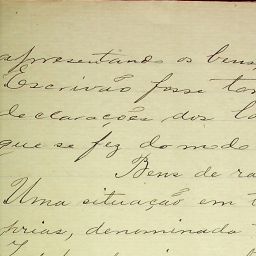 apresentando os bens,
Escrivão fosse ter
declarações dos lo
que se fez do modo
Bens de ra
Uma situação em t
prias, denominada